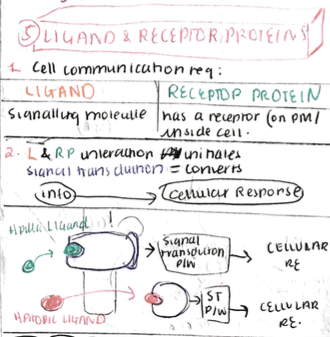 5 LIGAND & RECEPTOR PROTEINS
1. Cell communication req:
LIGAND
RECEPTOR PROTEIN
Signalling molecule
has a receptor (on PM/
inside cell.
2. L & RP interaction initiates
signal transduction = converts
info → Cellular Response
!
Signal
transduction
P/W
CELLULAR
RE
ST
P/W
CELLULAR
RE.
LIGAND
LIGAND